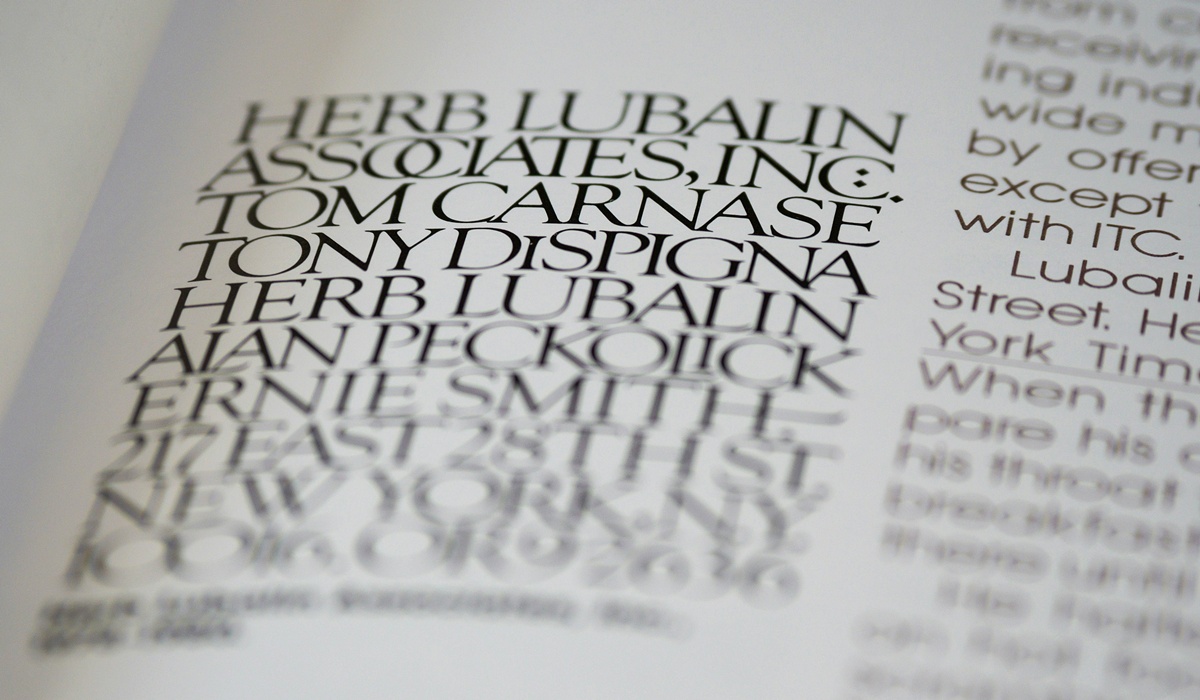 HERB LUBALIN
ASSOCIATES, INC.:
TOM CARNASE
TONY DISPIGNA
HERB LUBALIN
ALAN PECKOLICK
ERNIE SMITH.
217 EAST 28TH ST.
NEW YORK, NY.
10016. OR9-2636
from
receivin
ing ind
wide m
by offer
except
with ITC.
Lubali
Street. He
York Tim
When th
pare his
his throat
breakfast
there until